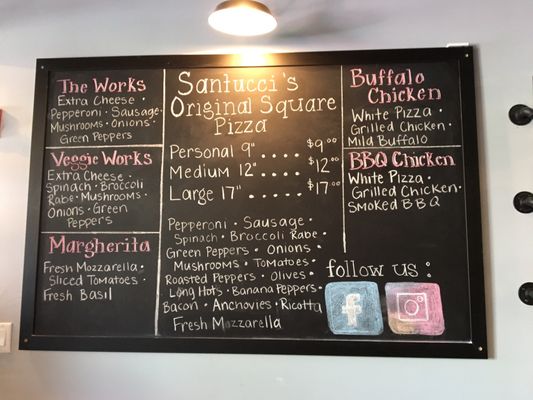 The Works
Extra Cheese •
Pepperoni • Sausage •
Mushrooms • Onions •
Green Peppers
Veggie Works
Extra Cheese •
Spinach • Broccoli
Rabe • Mushrooms •
Onions • Green
Peppers
Margherita
Fresh Mozzarella •
Sliced Tomatoes •
Fresh Basil
Santucci's
Original Square
Pizza
Personal 9" .... $9.00
Medium 12" .... $12.00
Large 17" ..... $17.00
Pepperoni • Sausage •
Spinach • Broccoli Rabe •
Green Peppers • Onions •
Mushrooms • Tomatoes •
Roasted Peppers • Olives •
Long Hots • Banana Peppers •
Bacon • Anchovies • Ricotta
Fresh Mozzarella
Buffalo
Chicken
White Pizza •
Grilled Chicken •
Mild Buffalo
BBQ Chicken
White Pizza •
Grilled Chicken •
Smoked BBQ
follow us :
f